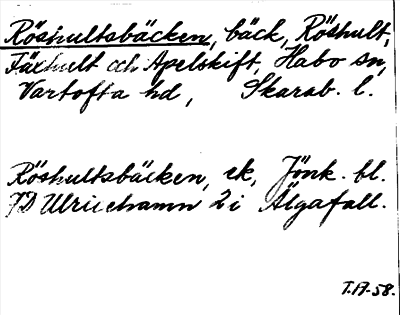 Röshultsbäcken, bäck, Röshult,
Färhult och Apelskift, Habo sn,
Vartofta hd, Skarab. l.
Röshultsbäcken, ek, Jönk. bl.
7D Ulricehamn 2 i Älgafall.
T.A-58.